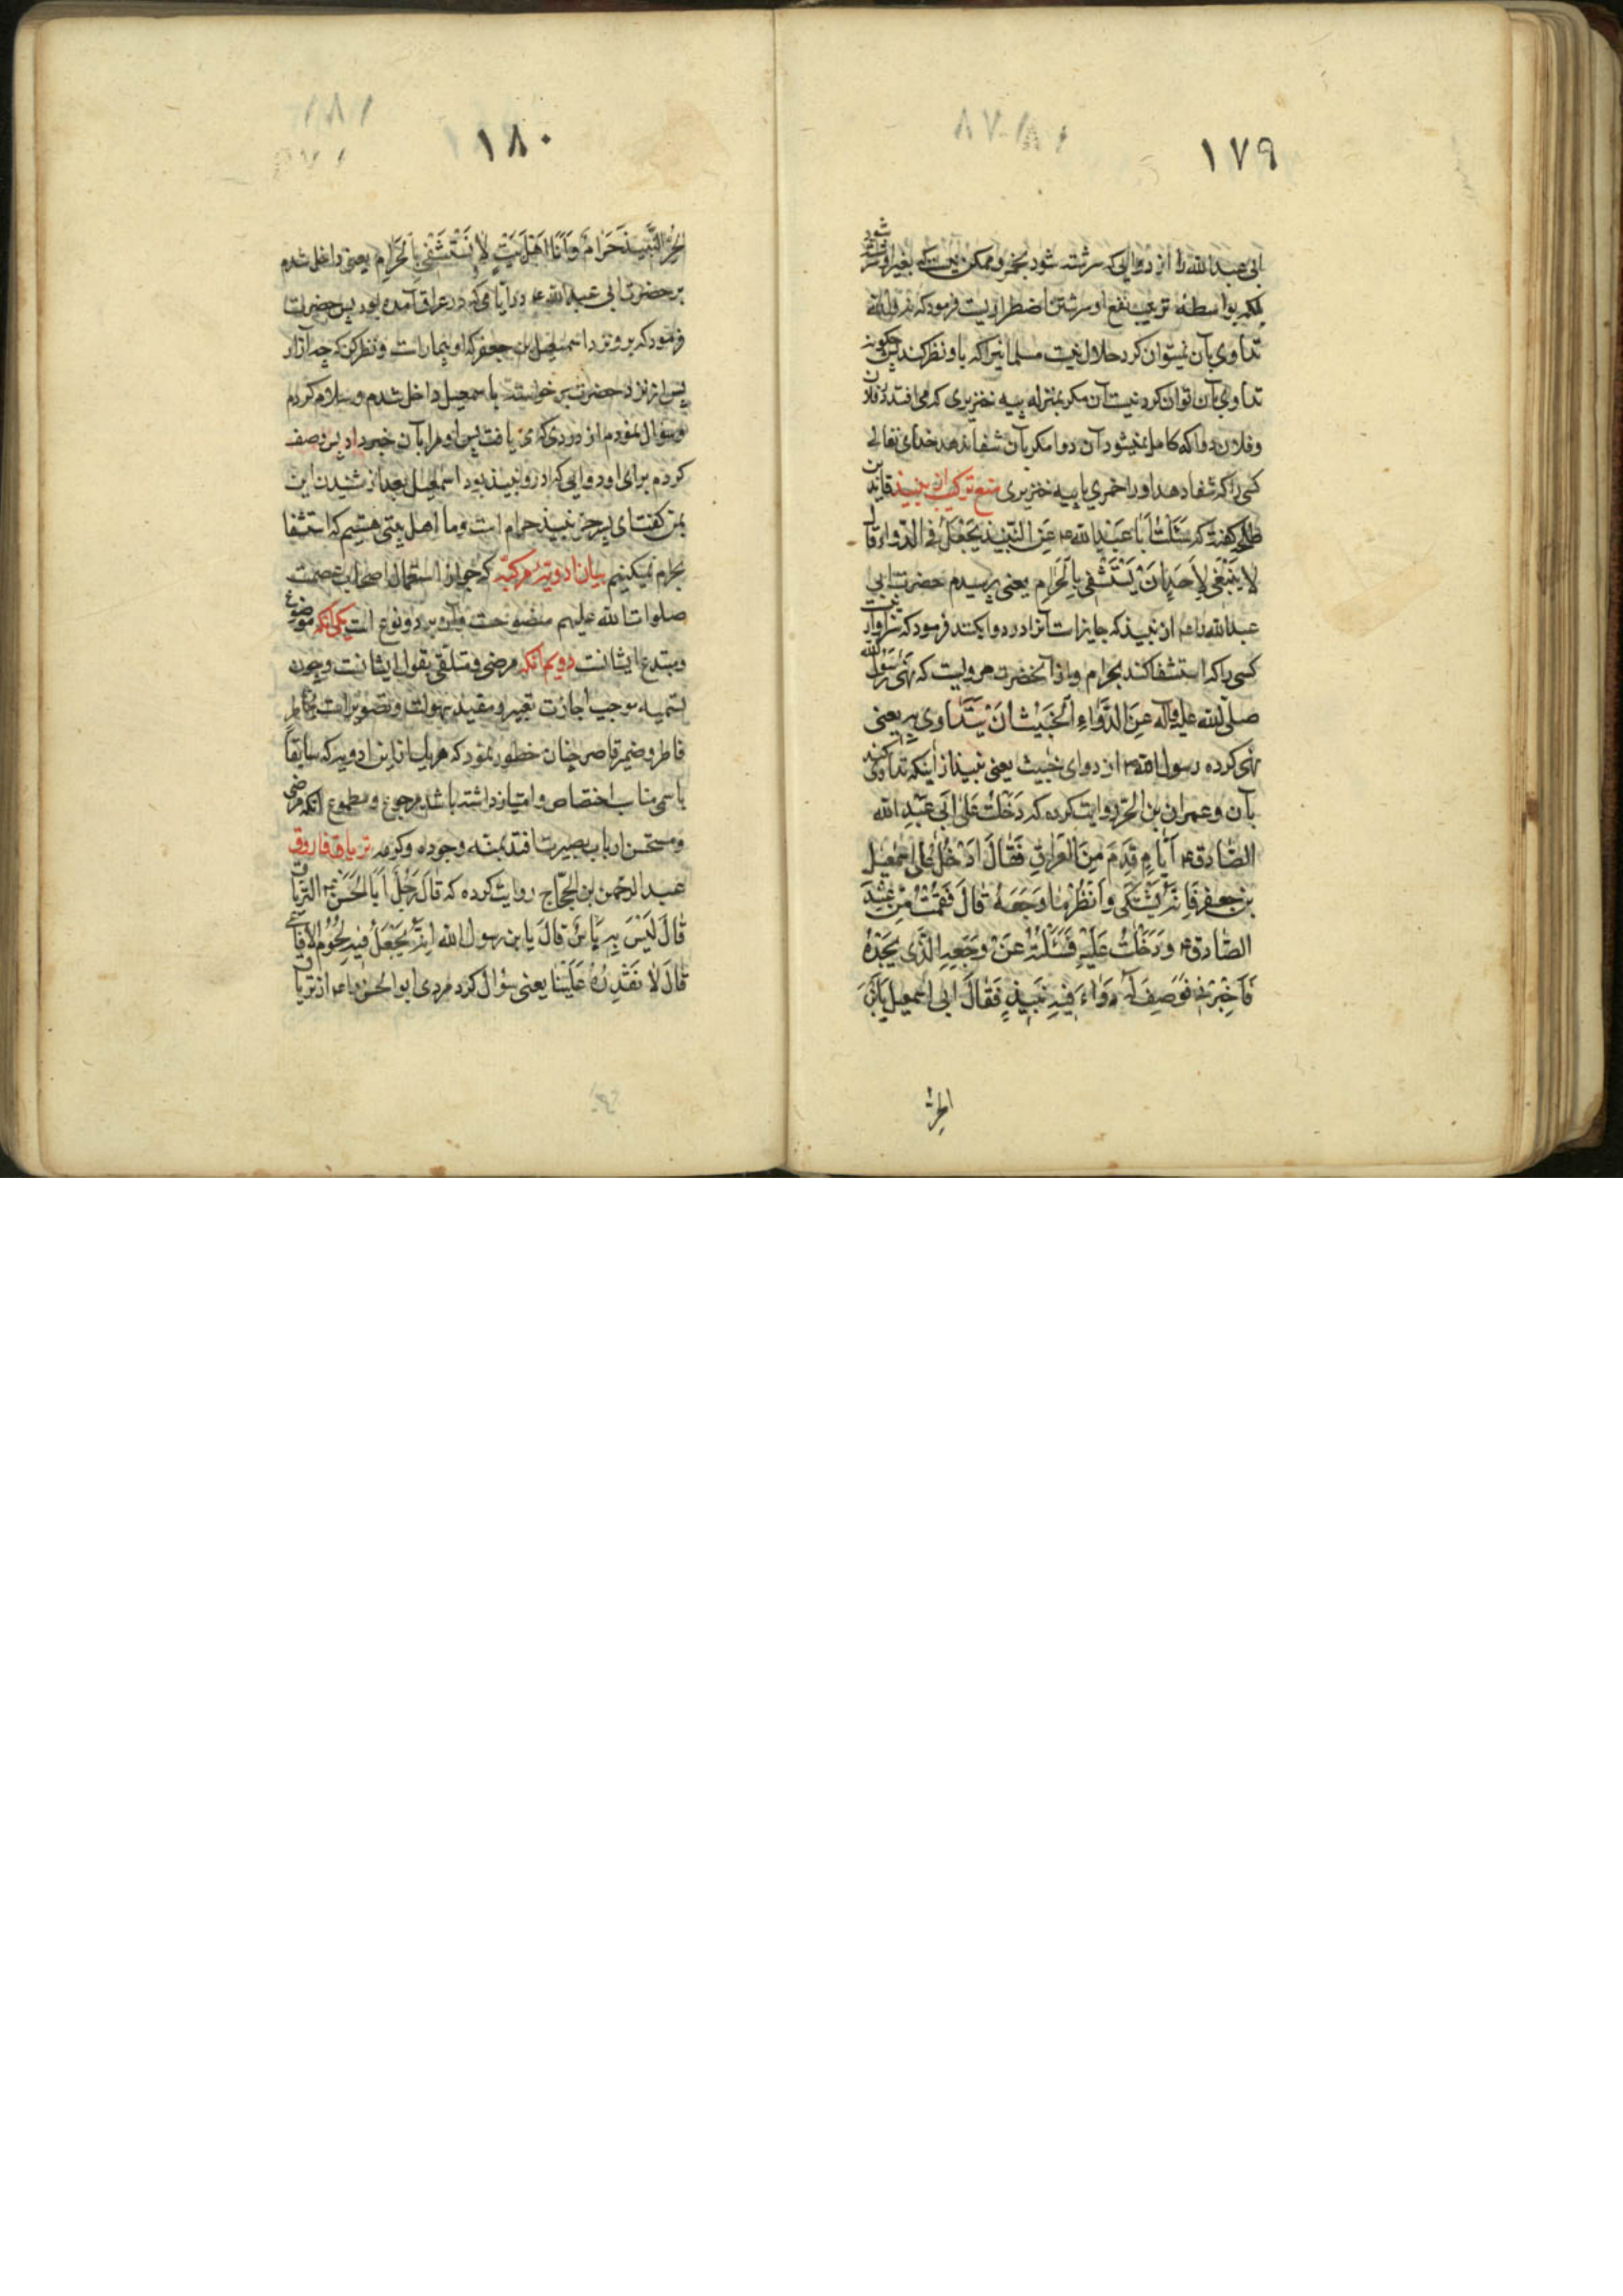 ١٧٩
ابی عبدالله را از دوایی که سرشته شود بخمر و ممکن نیست که بغیر او سرشته شود
بواسطه نفع او سرشتن اضطراریست فرمود که نه والله
تداوی بآن نمیتوان کرد حلال نیست مسلمانیرا که باو نظر کند پس چگونه
تداوی بآن توان کرد نیست آن مکر بمنزله پیه خنزیری که می افتد در فلان
وفلان دوا که کامل نمیشود آن دوا مکر بآن شفا ندهد خدای تعالی
کسی را که شفا دهد او را خمری یا پیه خنزیری منع ترکیب از نبیذ قاید بن
طلحه کفت که سَئَلتُ اَبا عَبدِ الله ع عَنِ النَّبیذِ یُجعَلُ فِی الدَّواء قالَ
لا یَنبَغی لِاَحَدٍ اَن یَستَشفی بِالحَرامِ یعنی پرسیدم حضرت ابی
عبدالله را ع از نبیذ که جایز است آنرا در دوا کنند فرمود که سزاوار نیست
کسی را که استشفا کند بحرام واز آنحضرت مرویست که نَهی رَسُولُ الله
صلی الله علیه وآله عَنِ الدَّواءِ الخَبیثِ اَن یُتَداوی بِه یعنی
نهی کرده رسول الله ص از دوای خبیث یعنی نبیذ از اینکه تداوی کنند
بآن وعمران بن الحر روایت کرده که دَخَلتُ عَلی اَبی عَبدِ الله
الصّادق ع اَیّامَ قَدِمَ مِنَ العَراقِ فَقالَ ادخُل عَلی اسمعیل
بن جعفر فَاِنَّهُ یَشتَکی وَانظُر ما وَجَعُهُ قالَ فَقُمتُ مِن عِندِ
الصّادق ع وَدَخَلتُ عَلَیهِ فَسَئَلتُهُ عَن وَجَعِهِ الَّذی یَجِدُهُ
فَاَخبَرَنی فَوَصَفتُ لَهُ دَواءً فیهِ نَبیذٍ فَقالَ لی اسمعیل یَابنَ
الحر
١٨٠
الحُرِّ النَّبیذُ حَرامٌ وَاَنّا اَهلُ بَیتٍ لا نَستَشفی بِالحَرامِ یعنی داخل شدم
بر حضرت ابی عبدالله ع در ایامی که در عراق آمده بود پس حضرت
فرمود که برو نزد اسمعیل بن جعفر که او بیمار است ونظر کن که چه آزار
پس از نزد حضرت برخواسته باسمعیل داخل شدم وسلام کردم
وسؤال نمودم از دردی که می یافت پس او مرا بآن خبر داد پس وصف
کردم برای او دوایی که در او نبیذ بود اسمعیل بعد از شنیدن این
بمن کفت ای پسر حر نبیذ حرام است وما اهل بیتی هستیم که استشفا
بحرام نمیکنیم بیان ادویهٔ مرکبه که جواز استعمال اصحاب عصمت
صلوات الله علیهم منصوصست وآن بر دو نوع است یکی آنکه موضوع
ومبتدع ایشانست دویم آنکه مرضی ومتلقی بقول ایشانست وچون
تسمیه موجب اجازت تعبیر ومفید سهولت وتصویر است بخاطر
فاطر وضمیر قاصر چنان خطور نمود که هر یک از این ادویه که سابقاً
باسمی مناب اختصاص وامتیاز داشته باشد مرجوع ومطموع آنکه مرضی
ومستحسن ارباب بصیرت افتد بمنه وجوده وکرمه تریاق فاروق
عبدالرحمن بن الحجاج روایت کرده که قالَ رَجُلٌ اَبَا الحَسَن ع التریاق
قالَ لَیسَ بِه بَاسٌ قالَ یا بن رسول الله اِنَّهُ یُجعَلُ فیهِ لُحُومُ الاَفاعی
قالَ لا نُقَذِّرُهُ عَلَینا یعنی سؤال کرد مردی ابوالحسن را ع از تریاق